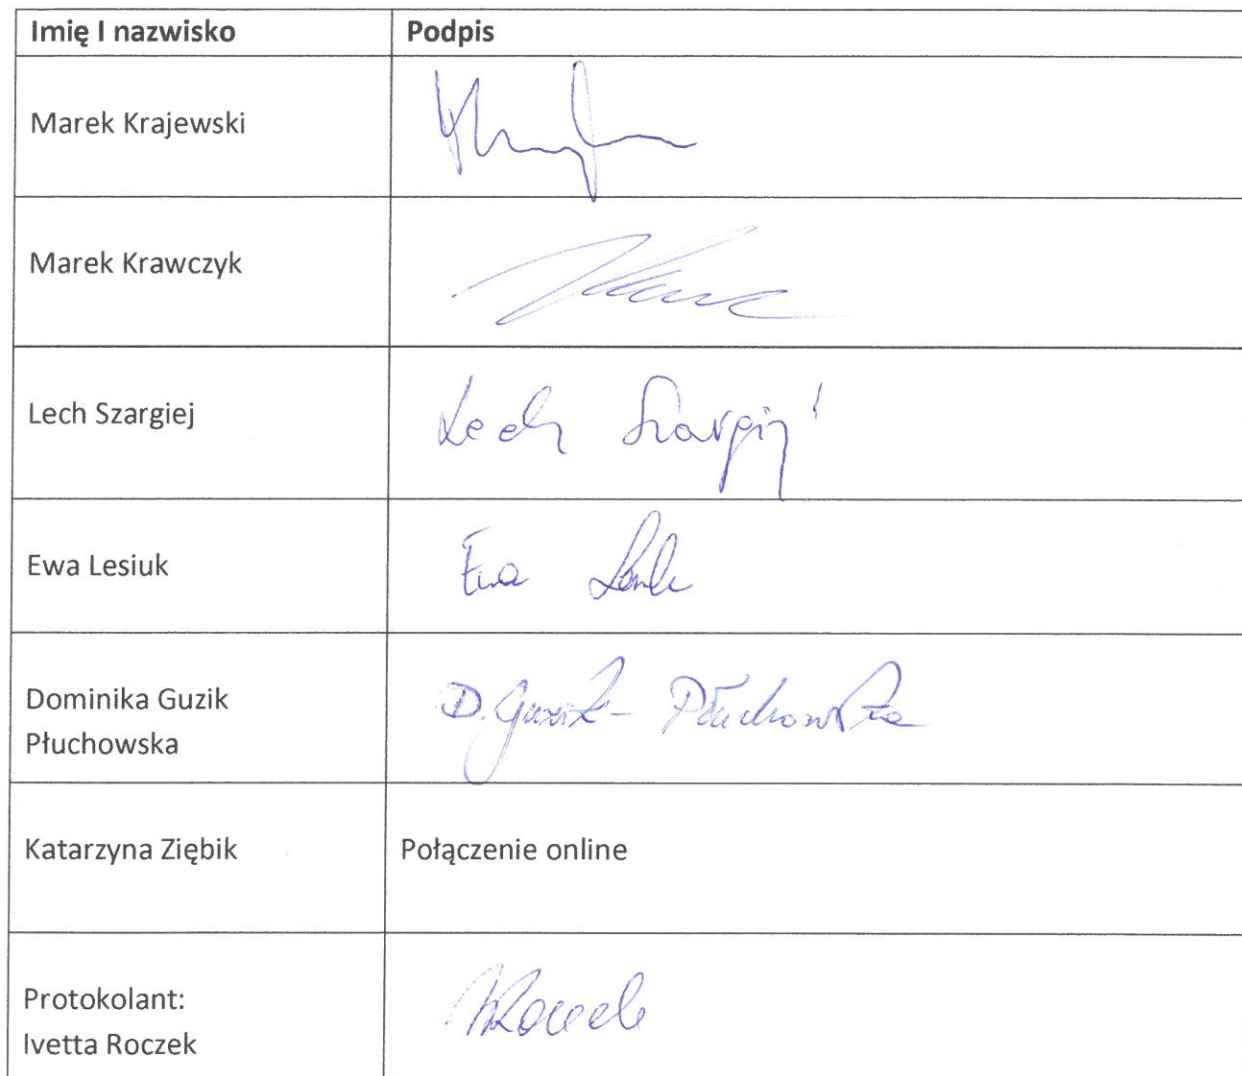 Imię I nazwisko Podpis
Marek Krajewski
Marek Krawczyk
Lech Szargiej Lech Szargiej
Ewa Lesiuk Ewa
Dominika Guzik D. Guzik - Płuchowska
Płuchowska
Katarzyna Ziębik Połączenie online
Protokolant:
Ivetta Roczek